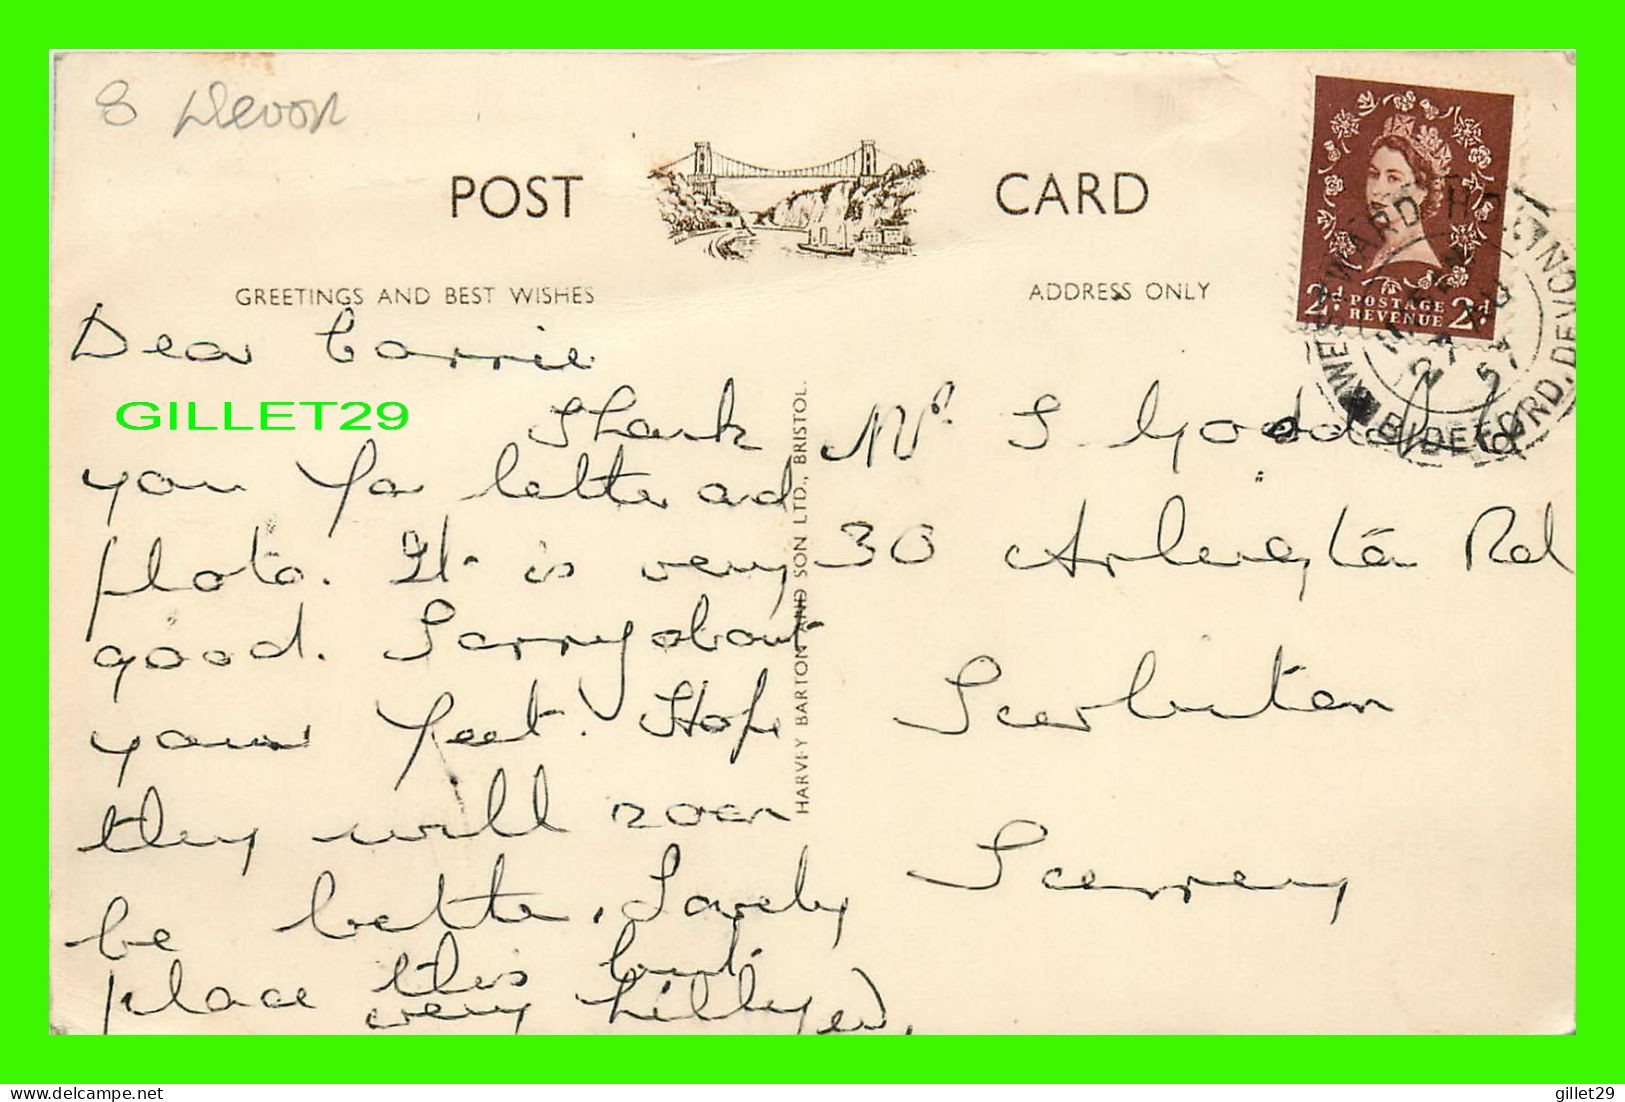 8 Devon
POST CARD
GREETINGS AND BEST WISHES
ADDRESS ONLY
2d POSTAGE REVENUE 2d
WESTWARD HO
BIDEFORD, DEVON
27 AUG 57
Dear Carrie
GILLET29
Thank
you for letter and
photo. It is very
good. Sorry about
your feet. Hope
they will soon
be better. Lovely
place this but
very hilly
HARVEY BARTON AND SON LTD., BRISTOL.
S Goddard
30 Arlington Rd
Surbiton
Surrey
gillet29